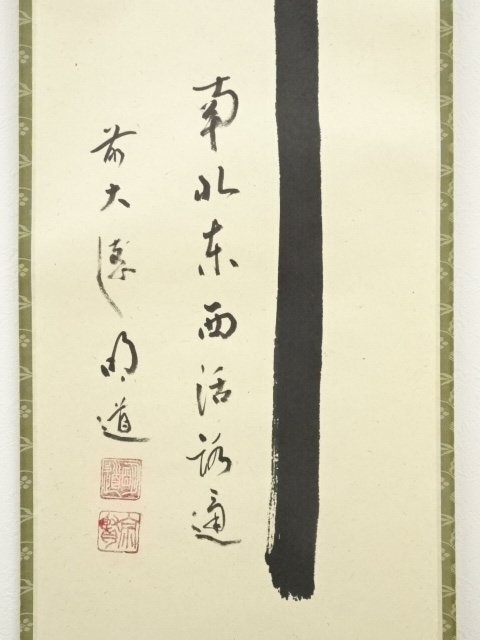 南北東西活路通
前大德明道